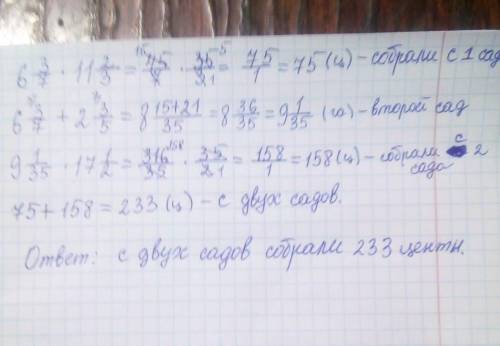 6 3/7 · 11 2/3 = 75/7 · 35/21 = 75/1 = 75 (ц) - собрали с 1 сад
6 3/7 + 2 3/5 = 8 15+21/35 = 8 36/35 = 9 1/35 (га) - второй сад
9 1/35 · 17 1/2 = 316/35 · 35/21 = 158/1 = 158 (ц) - собрали с 2 сада
75 + 158 = 233 (ц) - с двух садов.
Ответ: с двух садов собрали 233 центн.